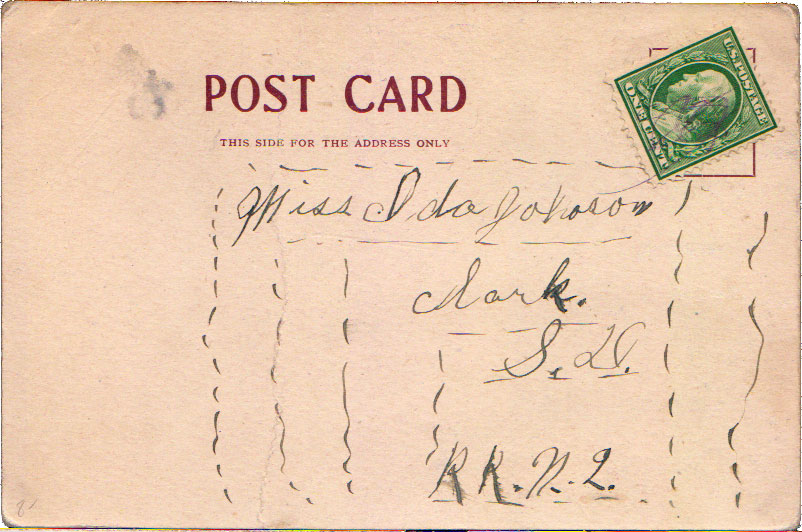 POST CARD
THIS SIDE FOR THE ADDRESS ONLY
U.S. POSTAGE
ONE CENT
Miss Ida Johnson
Clark.
S. D.
R R. N. 2.